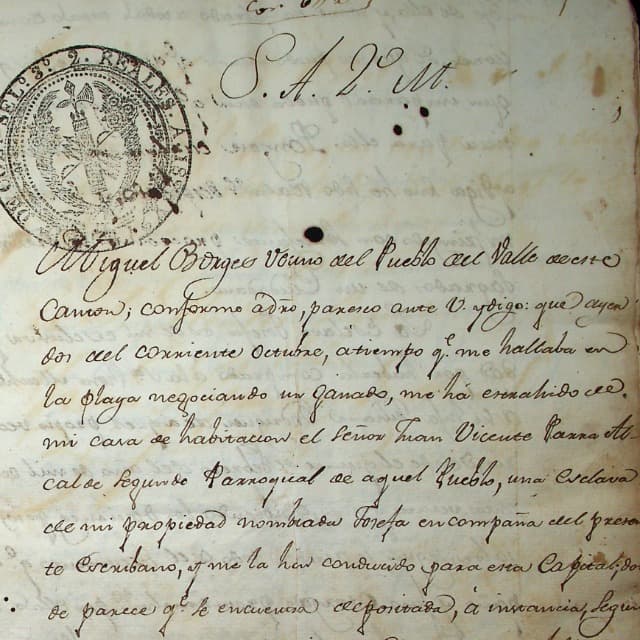 SEL.º 3.º 2. REALES A
S. A. 2.º M.
Miguel Borges Vecino del Pueblo del Valle de este
Canton; conforme a dro, paresco ante V. y digo: que ayer
dos del corriente Octubre, a tiempo q.e me hallaba en
la playa negociando un ganado, me há estrahido de
mi casa de habitacion el Señor Juan Vicente Parra Al-
calde segundo Parroquial de aquel Pueblo, una esclava
de mi propiedad nombrada Josefa en compaña del presen
te Escribano, y me la há conducido para esta Capital; don
de parece q.e se encuentra depositada, á instancia, segun